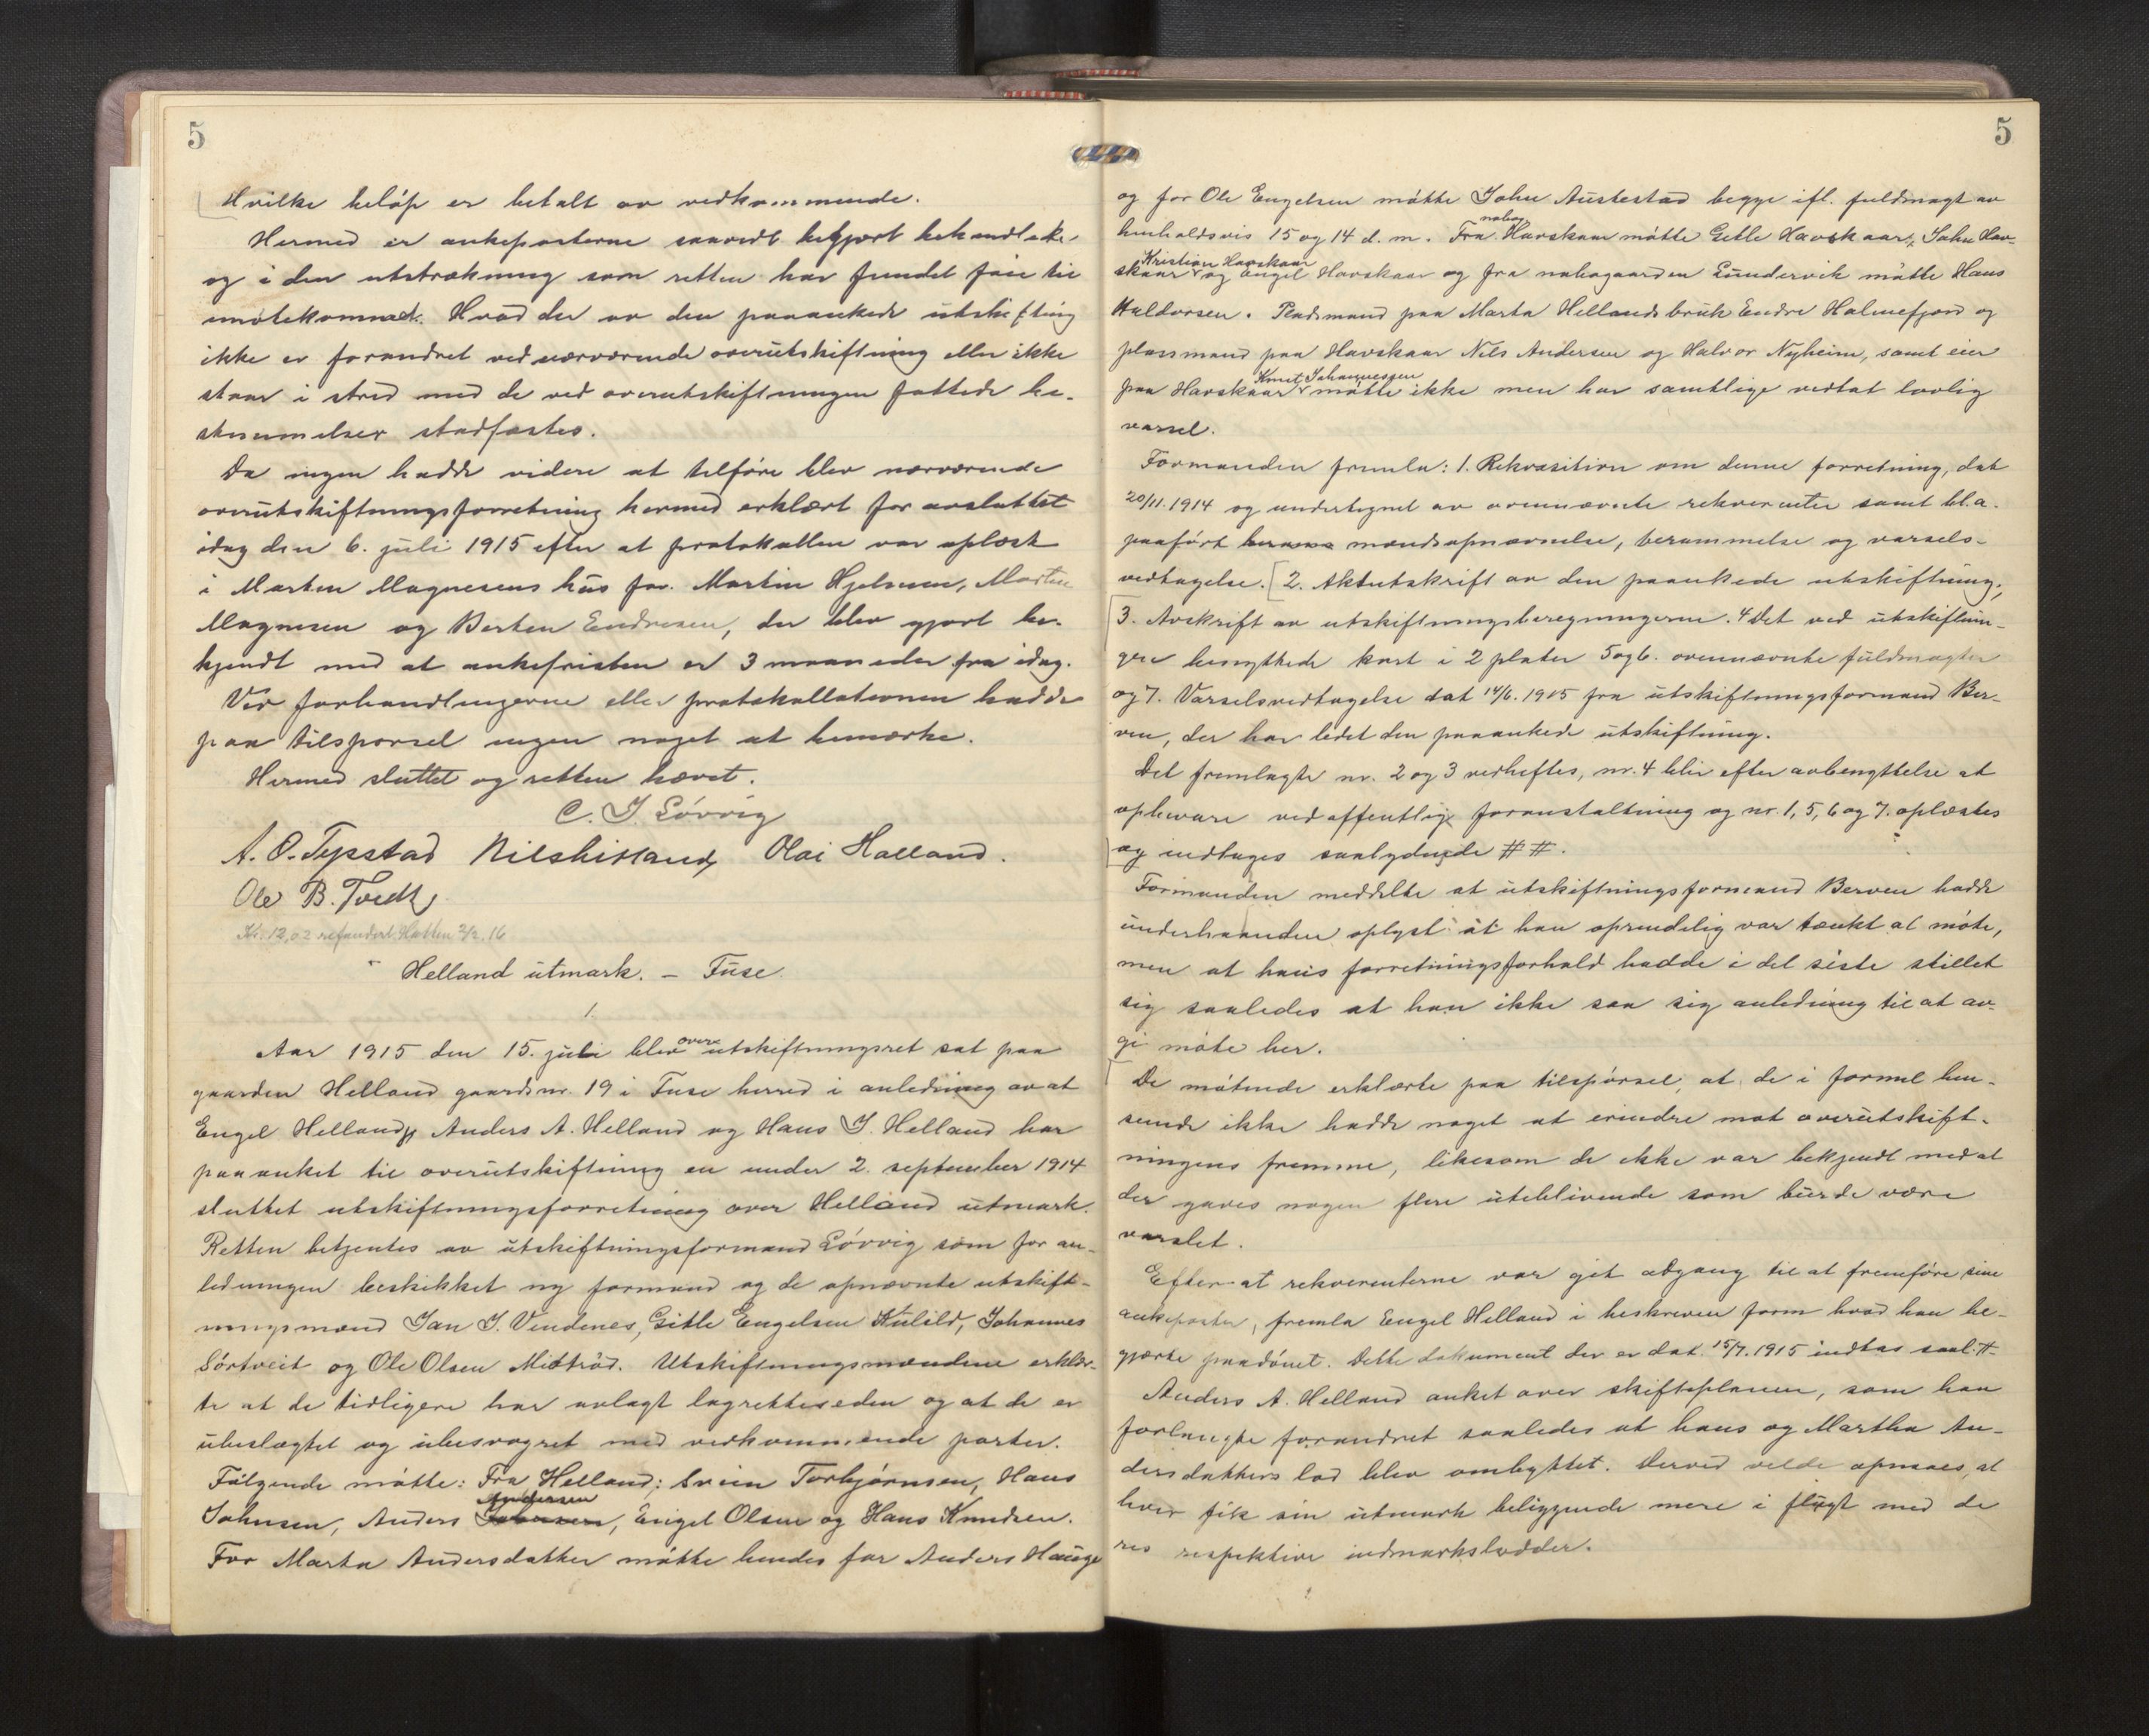 5
Hvilke beløp er betalt av vedkommende.
Hermed er ankeposterne saavidt begjært behandlet
og i den utstrækning som retten har fundet føie til
imøtekommet. Hvad der av den paaankede utskiftning
ikke er forandret ved nærværende overutskiftning eller ikke
staar i strid med de ved overutskiftningen fattede be-
stemmelser stadfæstes.
Da ingen hadde videre at tilføre blev nærværende
overutskiftningsforretning hermed erklært for avsluttet
idag den 6. juli 1915 efter at protokollen var oplæst
i Marten Magnesens hus for Martin Hjelmen, Marten
Magnesen og Berten Endresen, der blev gjort be-
kjendt med at ankefristen er 3 maaneder fra idag.
Ved forhandlingerne eller protokollationen hadde
paa tilspørsel ingen noget at bemærke.
Hermed sluttet og retten hævet.
C. J. Løvvig
A. O. Tysstad Nils Listand Olai Halland.
Ole B. Tvedt
Kr. 12,02 refundert Hatten 2/2. 16
Helland utmark. – Fuse.
1.
Aar 1915 den 15. juli blev overutskiftningsret sat paa
gaarden Helland gaardsnr. 19 i Fuse herred i anledning av at
Engel Helland, Anders A. Helland og Hans J. Helland har
paaanket til overutskiftning en under 2. september 1914
sluttet utskiftningsforretning over Helland utmark.
Retten betjentes av utskiftningsformand Løvvig som for an-
ledningen beskikket ny formand og de opnævnte utskift-
ningsmænd Jan J. Vindenes, Gitle Engelsen Kulild, Johannes
Sørtveit og Ole Olsen Midtrød. Utskiftningsmændene erklær-
te at de tidligere har avlagt lagretteseden og at de er
ubeslægtet og ubesvogret med vedkommende parter.
Følgende møtte: Fra Helland: Svein Torbjørnsen, Hans
Johnsen, Anders Andersen, Engel Olsen og Hans Knudsen.
For Marta Andersdatter møtte hendes far Anders Hauge
5
og for Ole Engelsen møtte John Austestad begge ifl. fuldmagt av
henholdsvis 15 og 14 d. m. Fra nabog. Havskaar møtte Gitle Havskaar, John Hav-
skaar Kristian Havskaar og Engel Havskaar og fra nabogaarden Lundervik møtte Hans
Haldorsen. Pladsmand paa Marta Hellands bruk Endre Holmefjord og
plassmand paa Havskaar Nils Andersen og Halvor Nyheim, samt eier
paa Havskaar Knut Johannessen møtte ikke men har samtlige vedtat lovlig
varsel.
Formanden fremla: 1. Rekvisition om denne forretning, dat
20/11. 1914 og undertegnet av ovennævnte rekvirenter samt bl.a.
paaført mændsopnævnelse, berammelse og varsels-
vedtagelse. 2. Aktutskrift av den paankede utskiftning;
3. Avskrift av utskiftningsberegningerne. 4 Det ved utskiftnin-
gen benyttede kart i 2 plater 5 og 6. ovennævnte fuldmagter
og 7. Varselsvedtagelse dat 14/6. 1915 fra utskiftningsformand Ber-
ven, der har ledet den paaankede utskiftning.
Det fremlagte nr. 2 og 3 vedheftes, nr. 4 blir efter avbenyttelse at
opbevare ved offentlig foranstaltning og nr. 1, 5, 6 og 7. oplæstes
og indtages saalydende ##.
Formanden meddelte at utskiftningsformand Berven hadde
underhaanden oplyst at han oprindelig var tænkt at møte,
men at hans forretningsforhold hadde i det siste stillet
sig saaledes at han ikke saa sig anledning til at av-
gi møte her.
De møtende erklærte paa tilspørsel, at de i formel hen-
seende ikke hadde noget at erindre mot overutskift-
ningens fremme, likesom de ikke var bekjendt med at
der gaves nogen flere uteblivende som burde være
varslet.
Efter at rekvirenterne var git adgang til at fremføre sine
ankeposter, fremla Engel Helland i beskreven form hvad han be-
gjærte paadømt. Dette dokument der er dat. 15/7. 1915 indtas saal. #
Anders A. Helland anket over skifteplanen, som han
forlangte forandret saaledes at hans og Martha An-
dersdatters lod blev ombyttet. Derved vilde opnaaes, at
hver fik sin utmark beliggende mere i flugt med de
res respektive indmarkslodder.